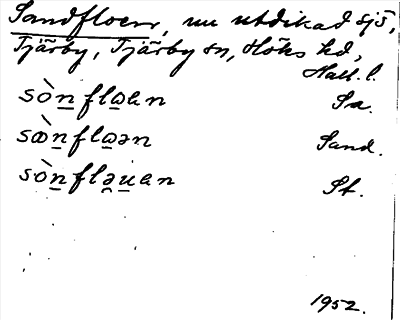 Sandfloen, nu utdikad sjö,
Tjärby, Tjärby sn, Höks hd,
Hall. l.
sònflaan Sa.
sæ̀nflaən Sand.
sònfləuan St.
1952.